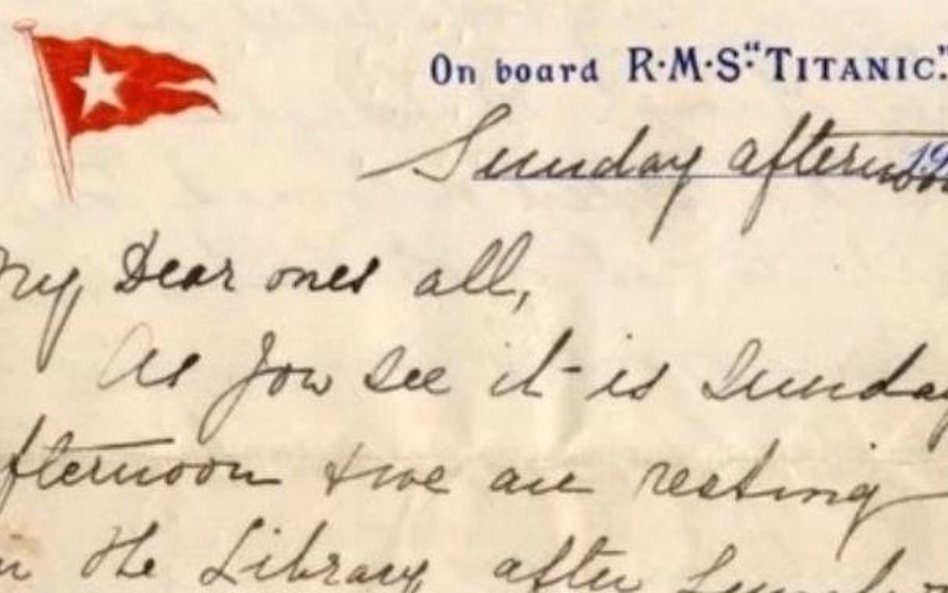 On board R·M·S·"TITANIC."
Sunday afternoon 19
My Dear ones all,
As you see it is Sunday
afternoon & we are resting
in the Library after Lunch